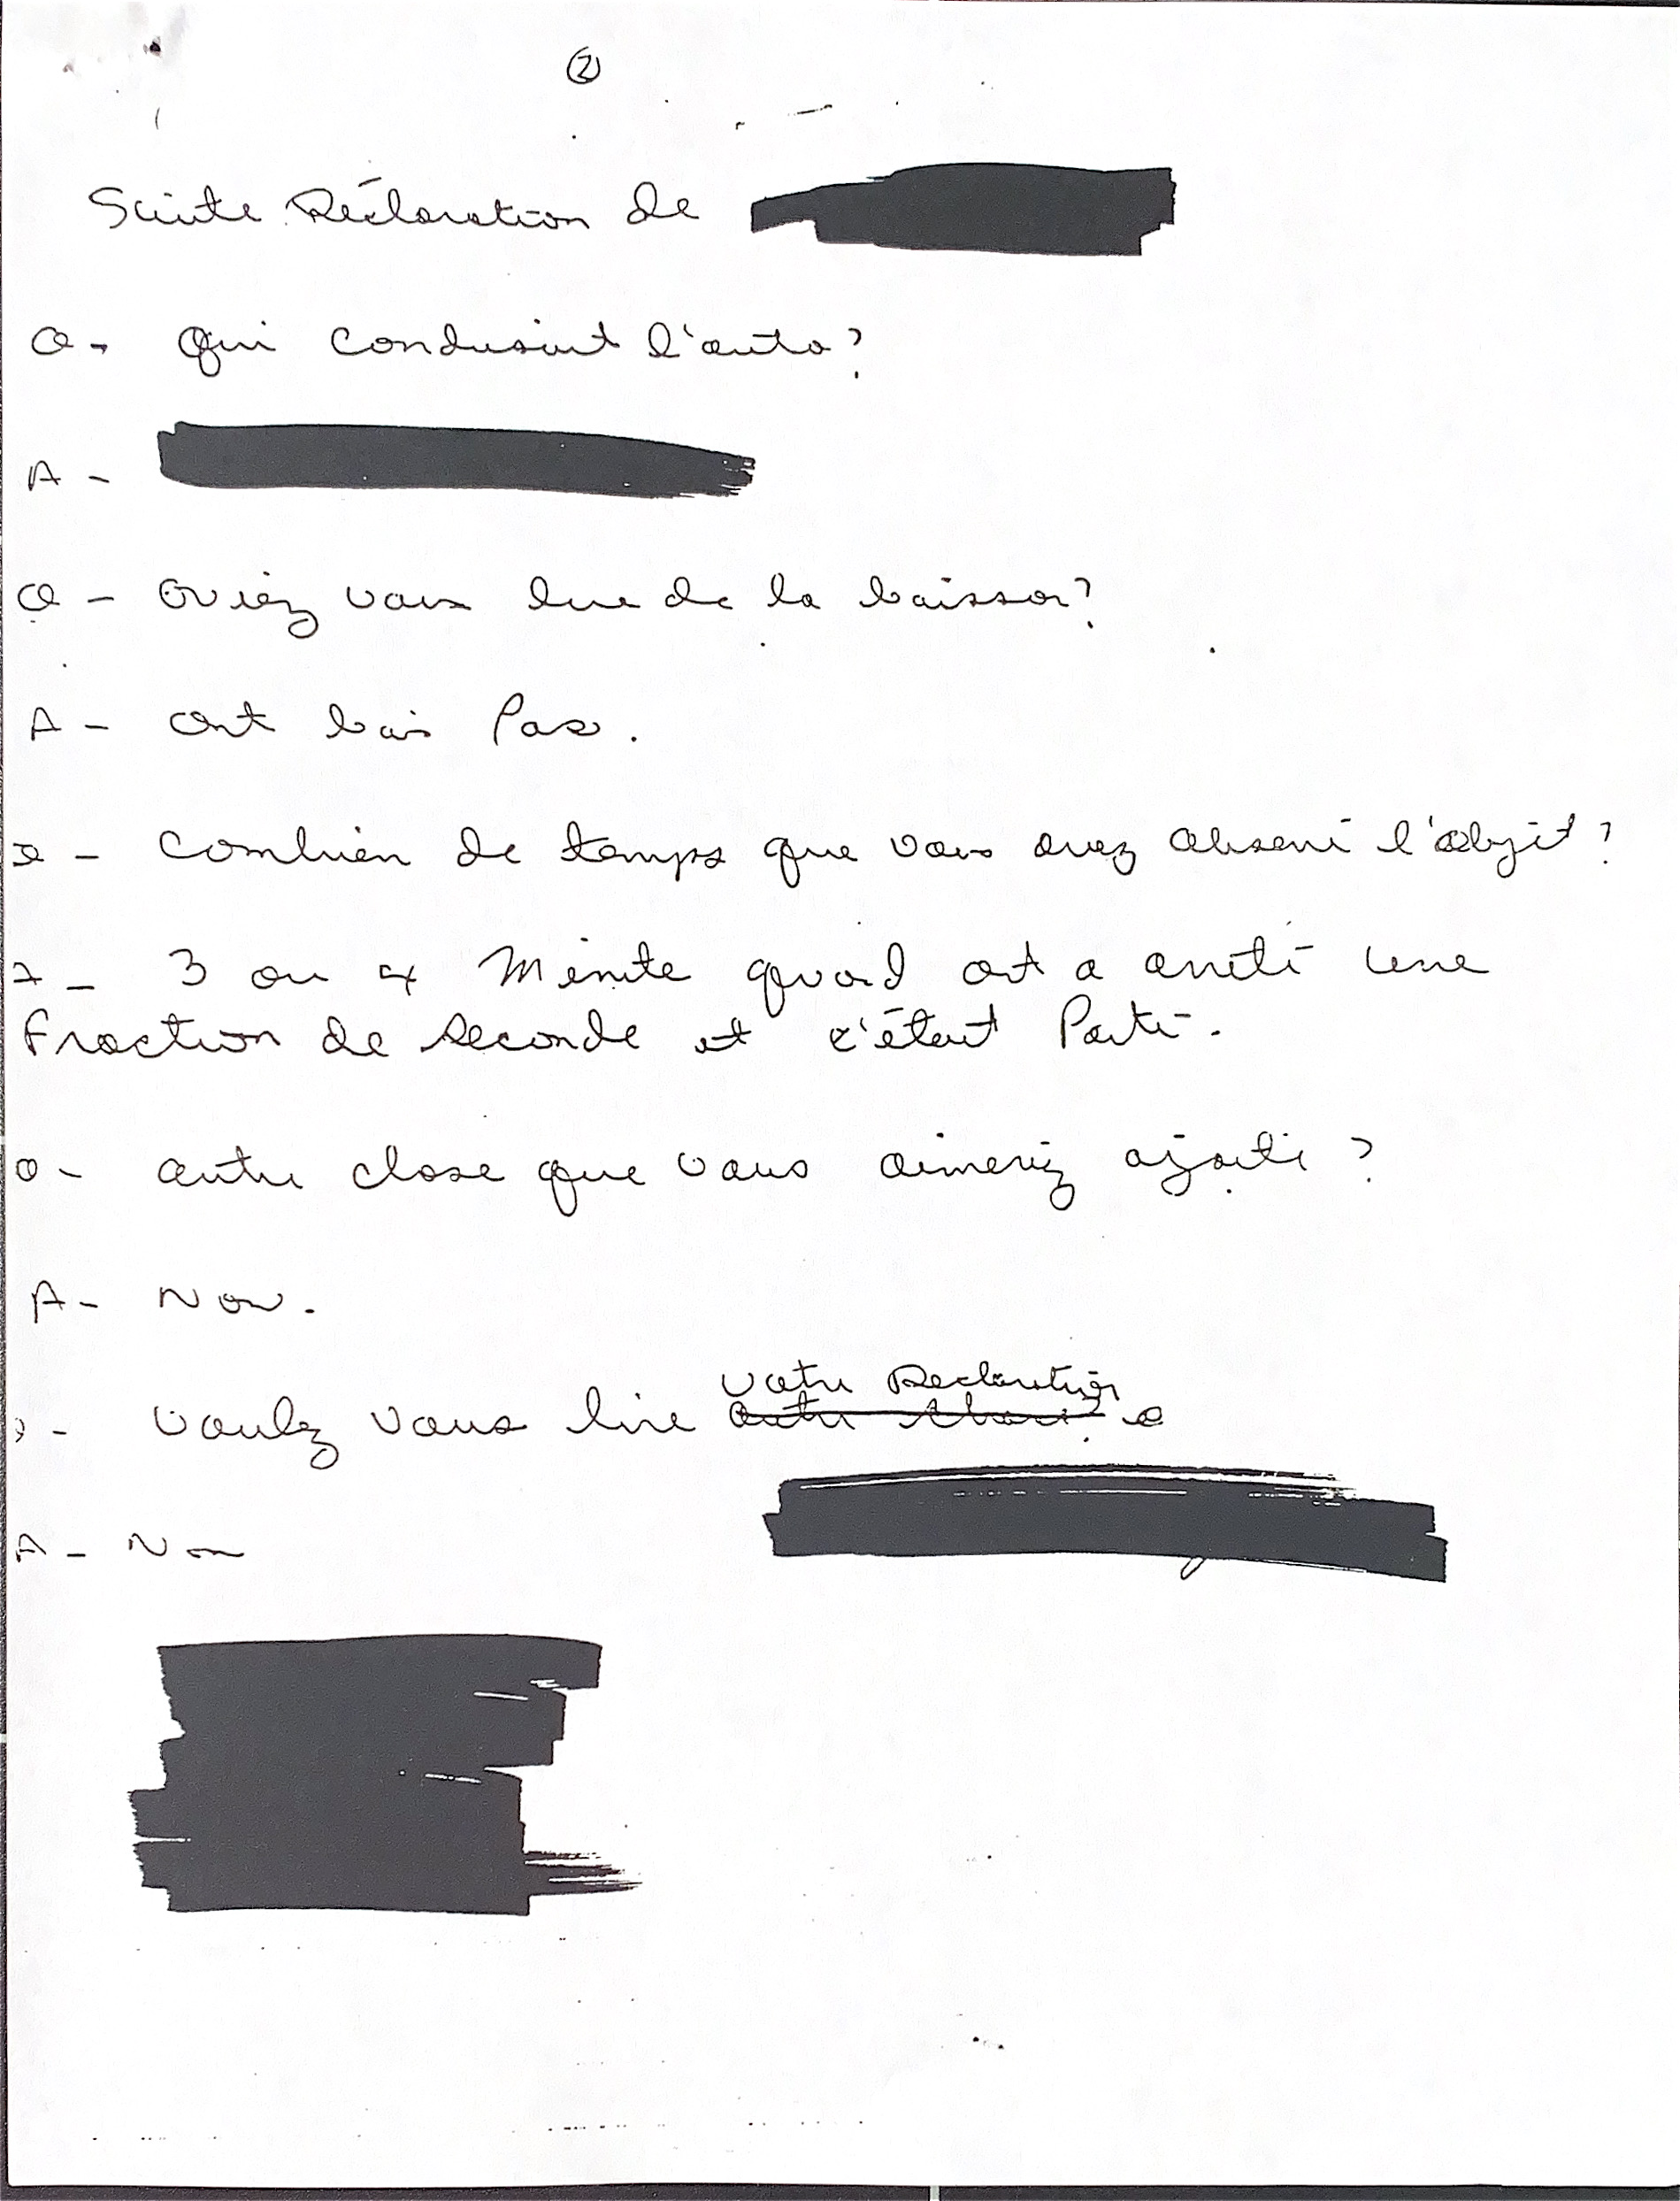 ②
Suite Déclaration de
Q- Qui condusait l'auto?
A -
Q - Aviez vous bue de la boisson?
A - ont bois Pas.
Q - Combien de temps que vous avez observé l'objet?
A - 3 ou 4 Minute quand ont a arrêté une
fraction de seconde et c'était Parti.
Q - autre chose que vous aimeriez ajouté?
A - Non.
votre Déclaration
Q - voulez vous lire autre
A - Non